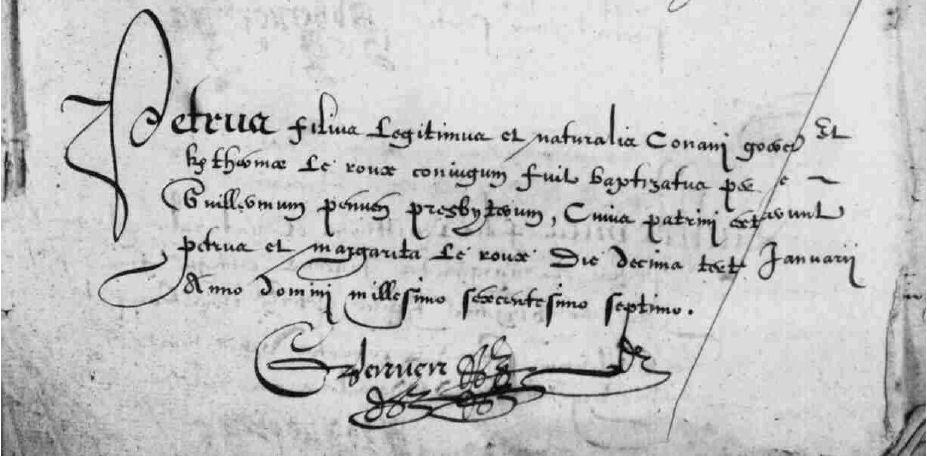 Petrus filius Legitimus et naturalis Conani goaer Et
theomae Le roux coniugum fuit baptizatus per
Guillermum penven presbyterum, Cuius patrini extavunt
petrus et margarita Le roux Die Decima Januarii
Anno Domini millesimo sexcentesimo septimo.
G penven